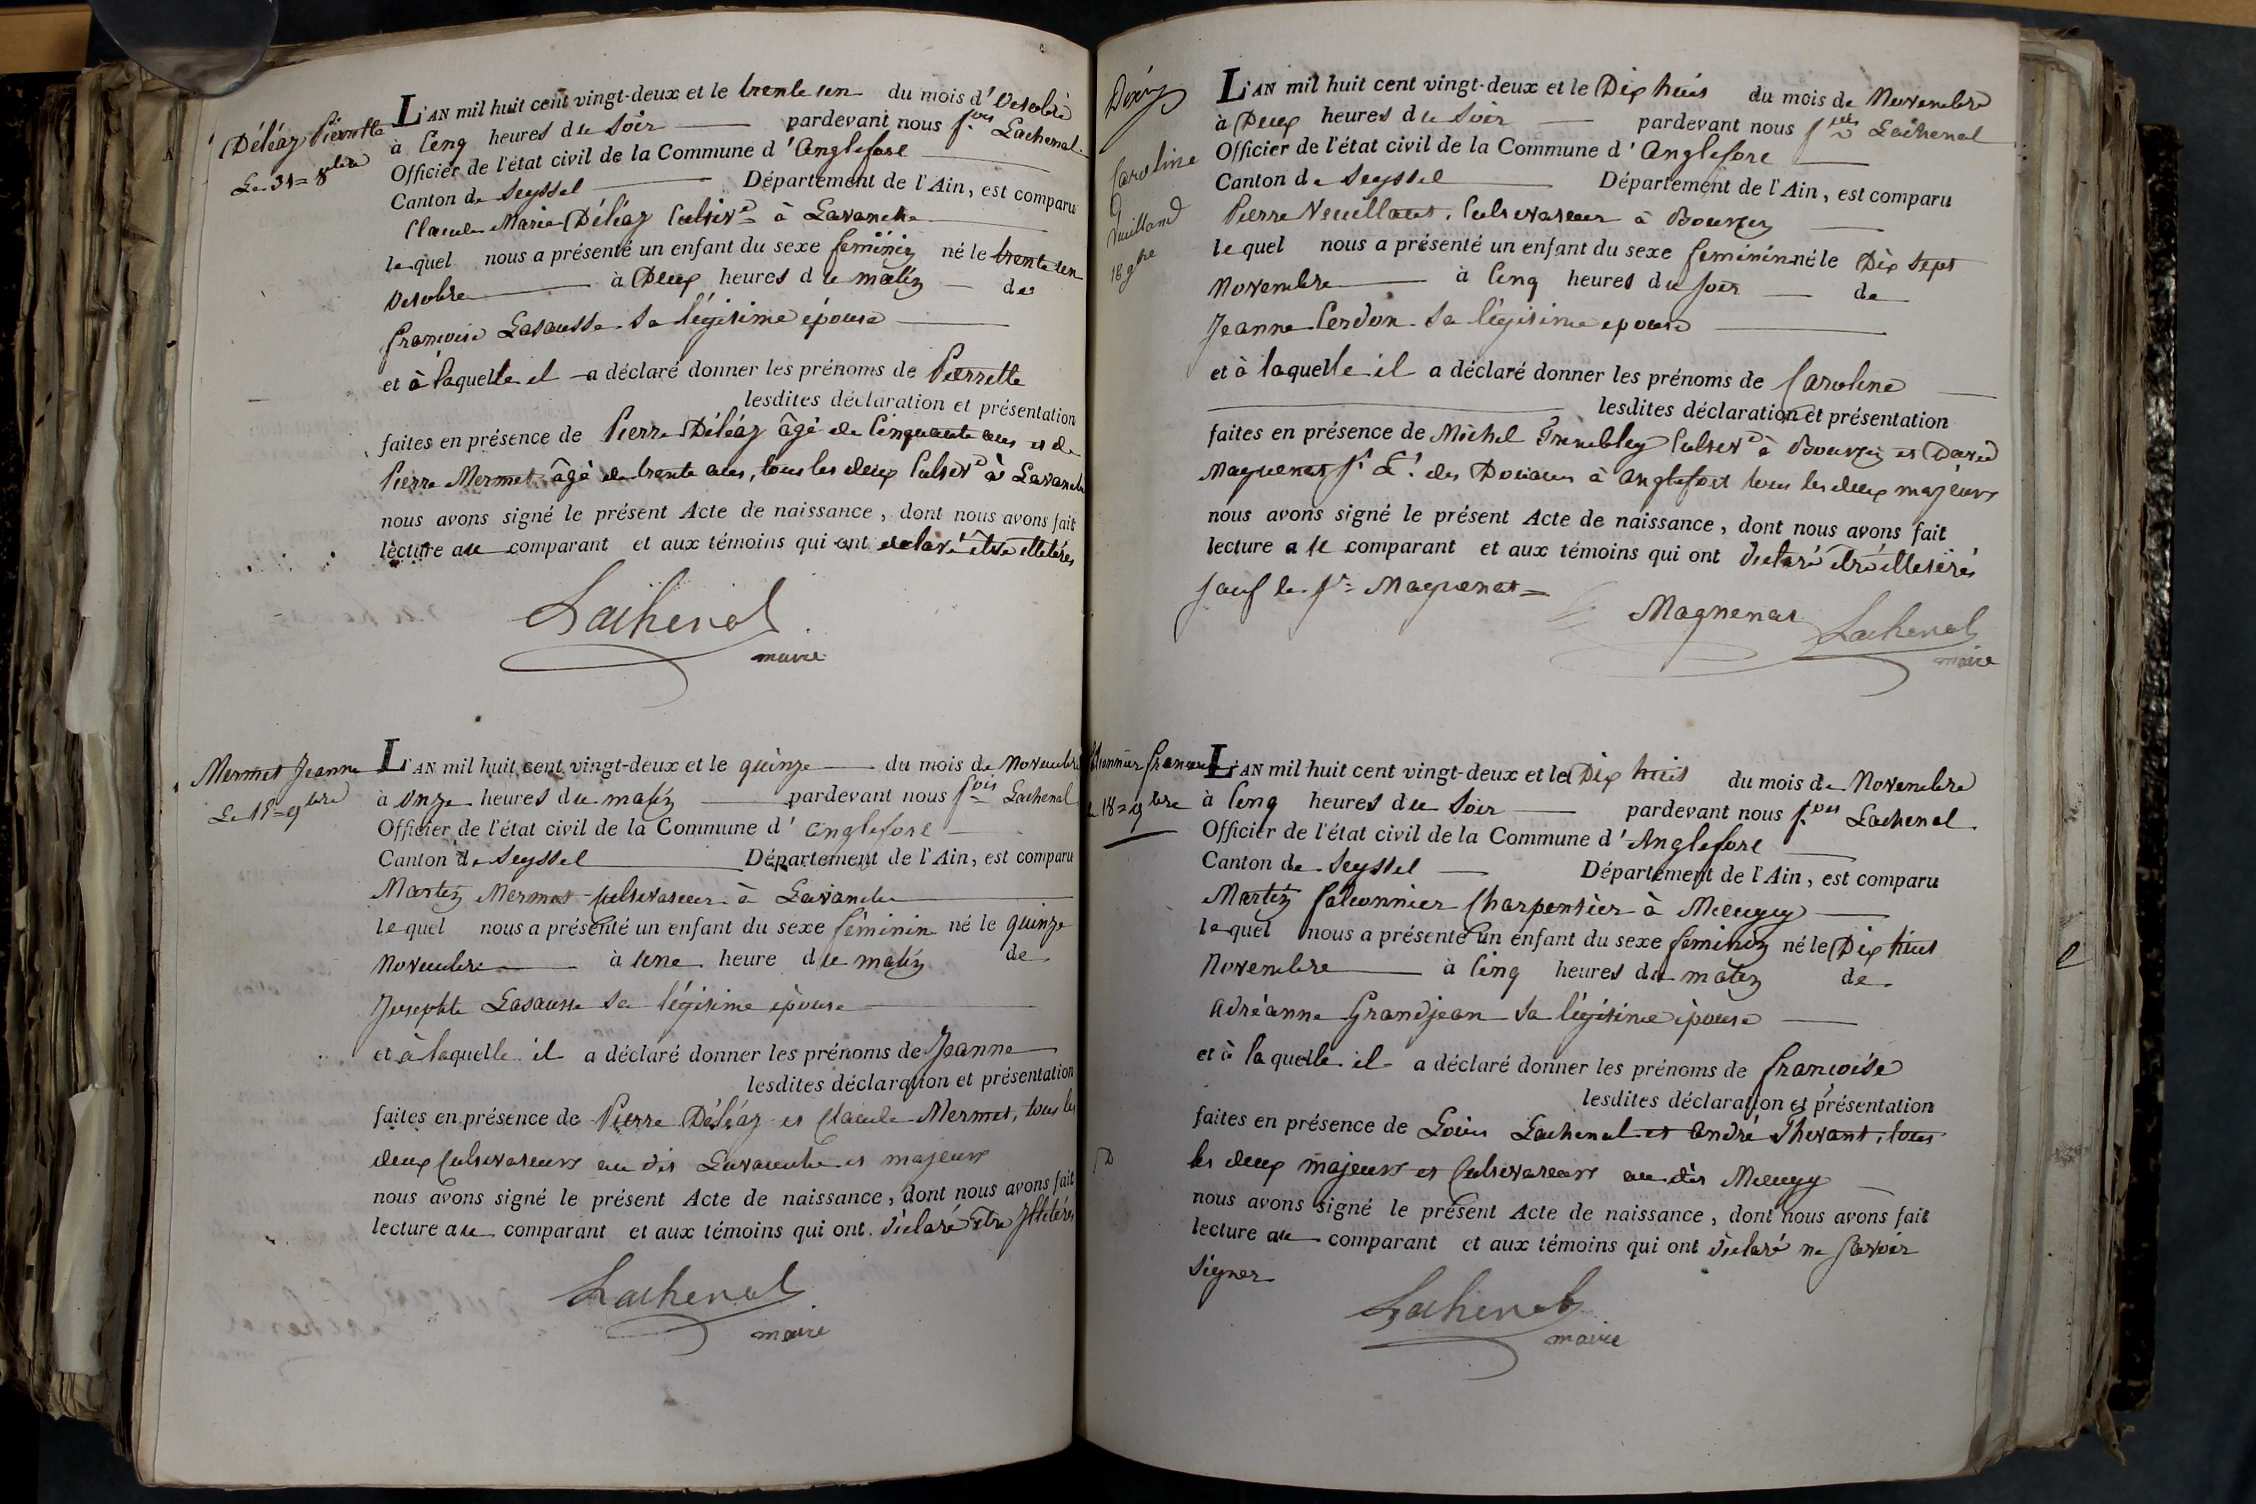 Déléaz Pierrette
Le 31 = 8bre
L'AN mil huit cent vingt-deux et le trente un du mois d'Octobre
à Cinq heures du Soir pardevant nous fois Lachenal
Officier de l'état civil de la Commune d'Anglefort
Canton de Seyssel Département de l'Ain, est comparu
Claude Marie Déléaz Cultivr à Lavanche
lequel nous a présenté un enfant du sexe féminin né le trente un
Octobre à Deux heures du matin de
françoise Lasausse Sa légitime épouse
et à laquelle il a déclaré donner les prénoms de Pierrette
lesdites déclaration et présentation
faites en présence de Pierre Déléaz âgé de Cinquante ans et de
Pierre Mermet âgé de trente ans, tous les deux Cultivr à Lavanche
nous avons signé le présent Acte de naissance, dont nous avons fait
lecture au comparant et aux témoins qui ont déclaré être illetérés
Lachenal
maire
Mermet Jeanne
Le 15 = 9bre
L'AN mil huit cent vingt-deux et le quinze du mois de Novembre
à Onze heures du matin pardevant nous fois Lachenal
Officier de l'état civil de la Commune d'Anglefort
Canton de Seyssel Département de l'Ain, est comparu
Martin Mermet Cultivateur à Lavanche
lequel nous a présenté un enfant du sexe féminin né le quinze
Novembre à une heure du matin de
Josephte Lasausse Sa légitime épouse
et à laquelle il a déclaré donner les prénoms de Jeanne
lesdites déclaration et présentation
faites en présence de Pierre Déléaz et Claude Mermet, tous les
deux Cultivateurs au dit Lavanche et majeurs
nous avons signé le présent Acte de naissance, dont nous avons fait
lecture au comparant et aux témoins qui ont déclaré être Illetérés
Lachenal
maire
Caroline
Vuilland
18 9bre
L'AN mil huit cent vingt-deux et le Dix huit du mois de Novembre
à Deux heures du Soir pardevant nous Lachenal
Officier de l'état civil de la Commune d'Anglefort
Canton de Seyssel Département de l'Ain, est comparu
Pierre Cultivateur à
lequel nous a présenté un enfant du sexe féminin né le Dix Sept
Novembre à Cinq heures du soir de
Jeanne Cerdon Sa légitime épouse
et à laquelle il a déclaré donner les prénoms de Caroline
lesdites déclaration et présentation
faites en présence de Michel Trembley Cultivr à et David
Magnenat des Douanes à Anglefort tous les deux majeurs
nous avons signé le présent Acte de naissance, dont nous avons fait
lecture au comparant et aux témoins qui ont déclaré être illetérés
sauf le Sr Magnenat =
Magnenat Lachenal
maire
françoise
18 = 9bre
L'AN mil huit cent vingt-deux et le Dix huit du mois de Novembre
à Cinq heures du Soir pardevant nous fois Lachenal
Officier de l'état civil de la Commune d'Anglefort
Canton de Seyssel Département de l'Ain, est comparu
Martin Falconnier Charpentier à
lequel nous a présenté un enfant du sexe féminin né le Dix huit
Novembre à Cinq heures du matin de
Adréanne Grandjean Sa légitime épouse
et à laquelle il a déclaré donner les prénoms de françoise
lesdites déclaration et présentation
faites en présence de Louis Lachenal et André Thevant, tous
les deux majeurs et Cultivateurs au dit
nous avons signé le présent Acte de naissance, dont nous avons fait
lecture au comparant et aux témoins qui ont déclaré ne savoir
Signer
Lachenal
maire